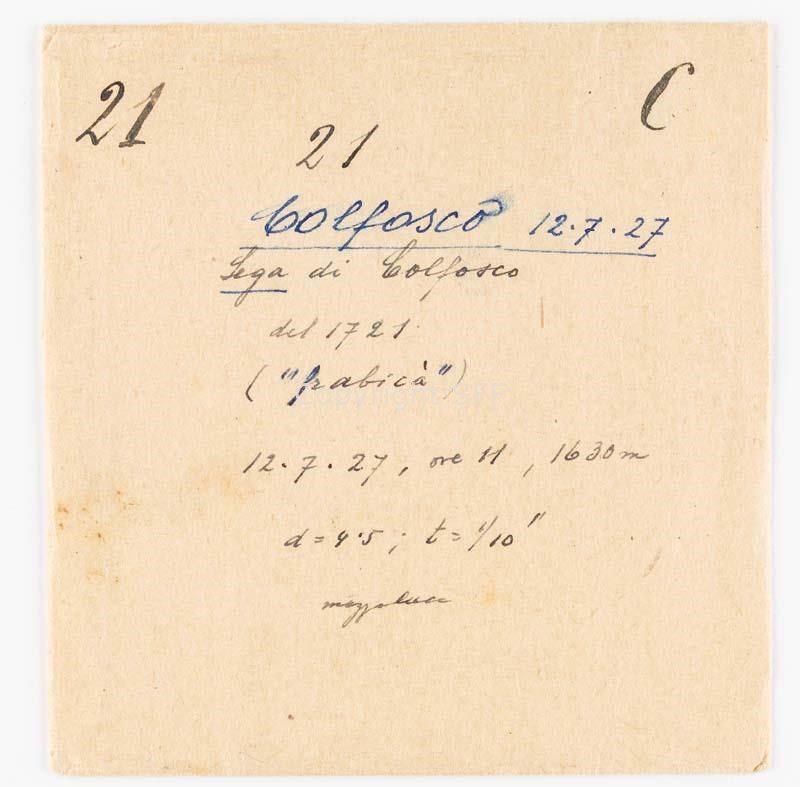 21
C
21
Colfosco 12.7.27
Sega di Colfosco
del 1721
12.7.27, ore 11, 1630m
d=4.5; t=1/10"
mezzaluce